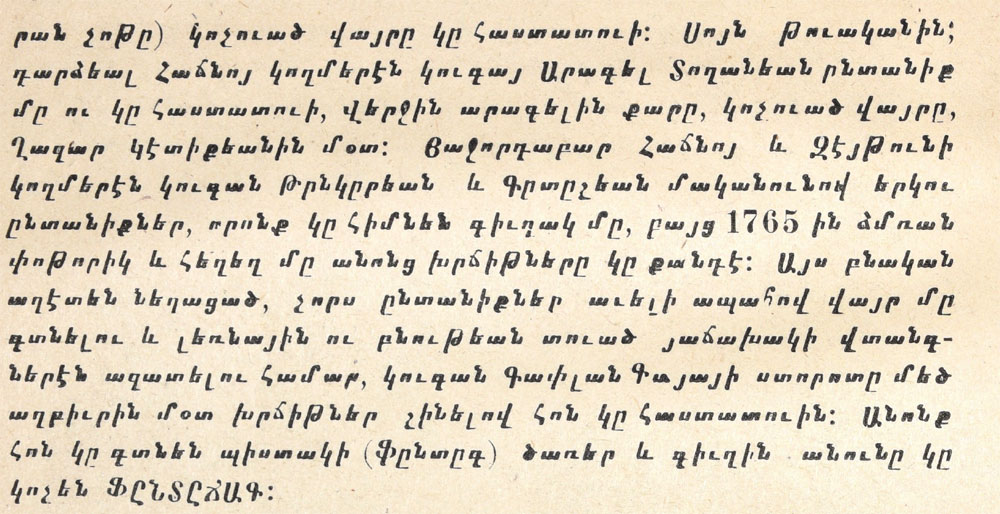 րան չոթը) կոչուած վայրը կը հաստատուի։ Սոյն թուականին;
դարձեալ Հաճնոյ կողմերէն կուգայ Արագել Տողանեան ընտանիք
մը ու կը հաստատուի, վերջին արագելին քարը, կոչուած վայրը,
Ղազար կէտիքեանին մօտ։ Յաջորդաբար Հաճնոյ և Զէյթունի
կողմերէն կուգան Թրնկըրեան և Գըտըշեան մականունով երկու
ընտանիքներ, որոնք կը հիմնեն գիւղակ մը, բայց 1765 ին ձմռան
փոթորիկ և հեղեղ մը անոնց խրճիթները կը քանդէ։ Այս բնական
աղէտեն նեղացած, չորս ընտանիքներ աւելի ապահով վայր մը
գտնելու և լեռնային ու բնութեան տուած յաճախակի վտանգ-
ներէն ազատելու համար, կուգան Գափլան Գայայի ստորոտը մեծ
աղբիւրին մօտ խրճիթներ շինելով հոն կը հաստատուին։ Անոնք
հոն կը գտնեն պիստակի (Ֆընտըգ) ծառեր և գիւղին անունը կը
կոչեն ՖԸՆՏԸՃԱԳ։